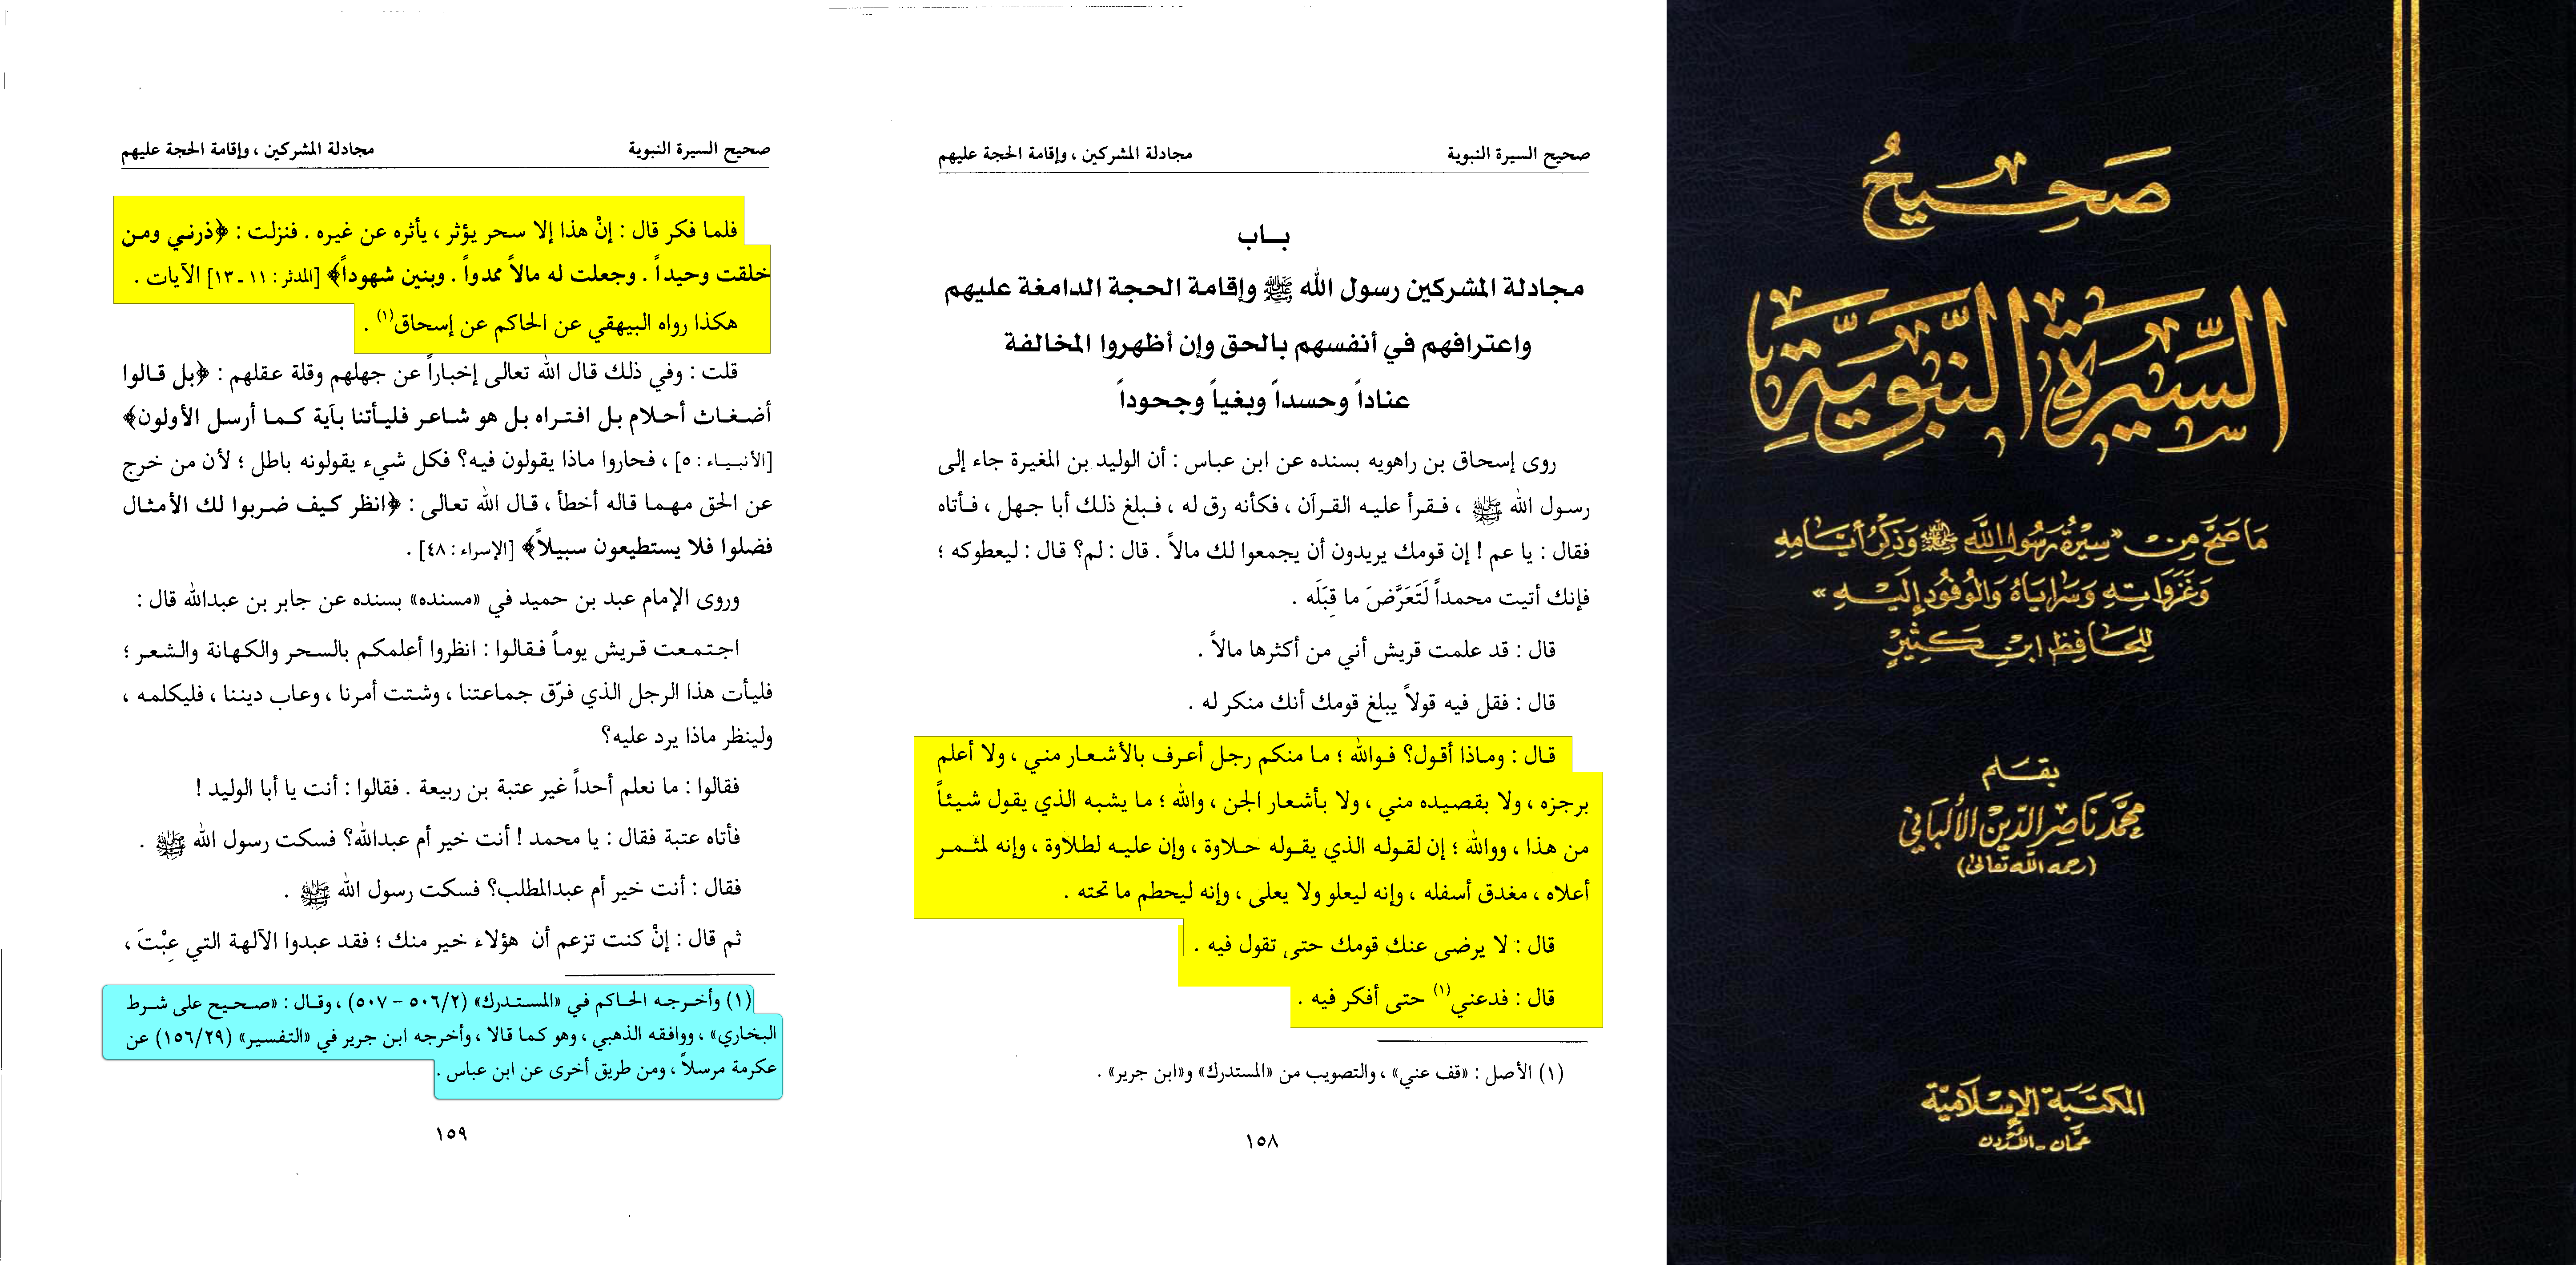 صحيح
السيرة النبوية
مَا صَحَّ مِنْ «سِيرَةُ رَسُولِ اللَّهِ ﷺ وَذِكْرُ أَيَّامِهِ
وَغَزَوَاتِهِ وَسَرَايَاهُ وَالْوُفُودِ إِلَيْهِ»
لِلْحَافِظِ ابْنِ كَثِيرٍ
بقلم
محمّد ناصر الدّين الألباني
(رحمه الله تعالى)
المكتبة الإسلامية
عمّان - الأردن
صحيح السيرة النبوية
مجادلة المشركين ، وإقامة الحجة عليهم
بـاب
مجادلة المشركين رسول الله ﷺ وإقامة الحجة الدامغة عليهم
واعترافهم في أنفسهم بالحق وإن أظهروا المخالفة
عناداً وحسداً وبغياً وجحوداً
روى إسحاق بن راهويه بسنده عن ابن عباس : أن الوليد بن المغيرة جاء إلى
رسول الله ﷺ ، فقرأ عليه القرآن ، فكأنه رق له ، فبلغ ذلك أبا جهل ، فأتاه
فقال : يا عم ! إن قومك يريدون أن يجمعوا لك مالاً . قال : لم؟ قال : ليعطوكه ؛
فإنك أتيت محمداً لَتَعَرَّضَ ما قِبَلَه .
قال : قد علمت قريش أني من أكثرها مالاً .
قال : فقل فيه قولاً يبلغ قومك أنك منكر له .
قال : وماذا أقول؟ فوالله ؛ ما منكم رجل أعرف بالأشعار مني ، ولا أعلم
برجزه ، ولا بقصيده مني ، ولا بأشعار الجن ، والله ؛ ما يشبه الذي يقول شيئاً
من هذا ، ووالله ؛ إن لقوله الذي يقوله حلاوة ، وإن عليه لطلاوة ، وإنه لمثمر
أعلاه ، مغدق أسفله ، وإنه ليعلو ولا يعلى ، وإنه ليحطم ما تحته .
قال : لا يرضى عنك قومك حتى تقول فيه .
قال : فدعني(١) حتى أفكر فيه .
(١) الأصل : «قف عني» ، والتصويب من «المستدرك» و«ابن جرير» .
١٥٨
صحيح السيرة النبوية
مجادلة المشركين ، وإقامة الحجة عليهم
فلما فكر قال : إنْ هذا إلا سحر يؤثر ، يأثره عن غيره . فنزلت : ﴿ذرني ومن
خلقت وحيداً . وجعلت له مالاً ممدواً . وبنين شهوداً﴾ [المدثر : ١١ ـ ١٣] الآيات .
هكذا رواه البيهقي عن الحاكم عن إسحاق(١) .
قلت : وفي ذلك قال الله تعالى إخباراً عن جهلهم وقلة عقلهم : ﴿بل قالوا
أضغاث أحلام بل افتراه بل هو شاعر فليأتنا بآية كما أرسل الأولون﴾
[الأنبياء : ٥] ، فحاروا ماذا يقولون فيه؟ فكل شيء يقولونه باطل ؛ لأن من خرج
عن الحق مهما قاله أخطأ ، قال الله تعالى : ﴿انظر كيف ضربوا لك الأمثال
فضلوا فلا يستطيعون سبيلاً﴾ [الإسراء : ٤٨] .
وروى الإمام عبد بن حميد في «مسنده» بسنده عن جابر بن عبدالله قال :
اجتمعت قريش يوماً فقالوا : انظروا أعلمكم بالسحر والكهانة والشعر ؛
فليأت هذا الرجل الذي فرّق جماعتنا ، وشتت أمرنا ، وعاب ديننا ، فليكلمه ،
ولينظر ماذا يرد عليه؟
فقالوا : ما نعلم أحداً غير عتبة بن ربيعة . فقالوا : أنت يا أبا الوليد !
فأتاه عتبة فقال : يا محمد ! أنت خير أم عبدالله؟ فسكت رسول الله ﷺ .
فقال : أنت خير أم عبدالمطلب؟ فسكت رسول الله ﷺ .
ثم قال : إنْ كنت تزعم أن هؤلاء خير منك ؛ فقد عبدوا الآلهة التي عِبْتَ ،
(١) وأخرجه الحاكم في «المستدرك» (٥٠٦/٢ - ٥٠٧) ، وقال : «صحيح على شرط
البخاري» ، ووافقه الذهبي ، وهو كما قالا ، وأخرجه ابن جرير في «التفسير» (١٥٦/٢٩) عن
عكرمة مرسلاً ، ومن طريق أخرى عن ابن عباس .
١٥٩